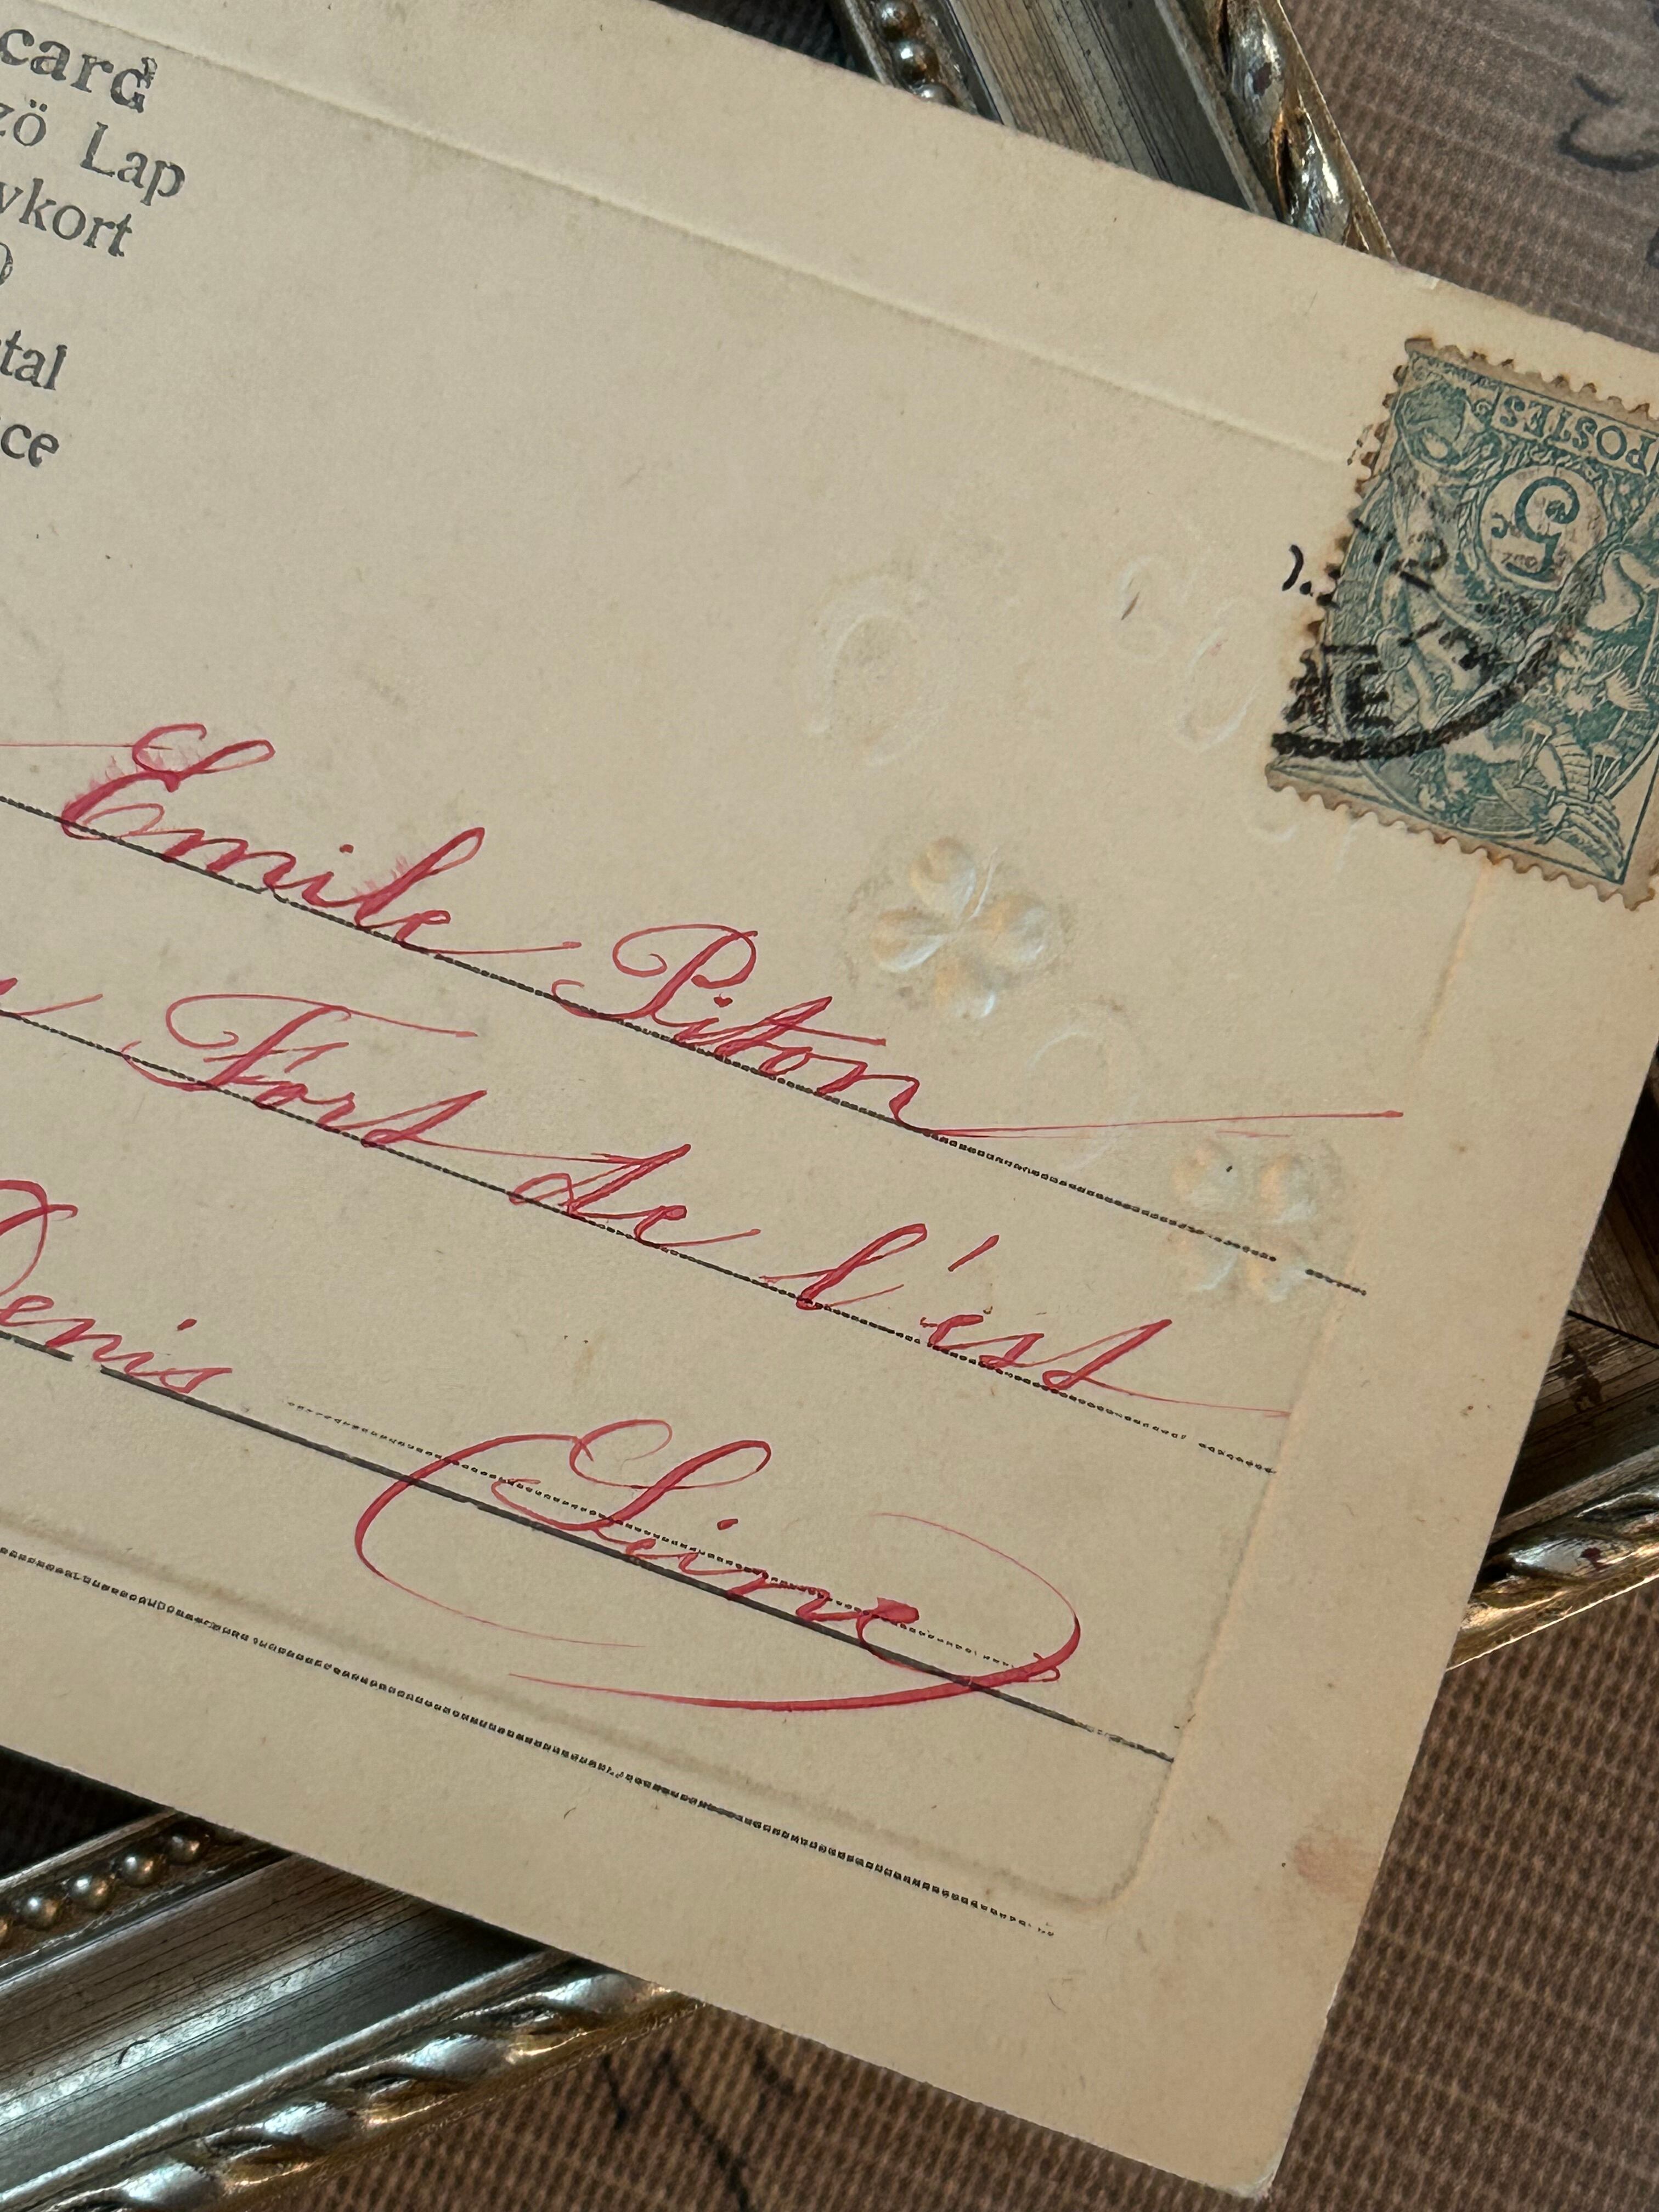 card
zö Lap
vkort
tal
ce
POSTES
5c
Emile Piton
Fort de l'ést
Denis
(Seine)